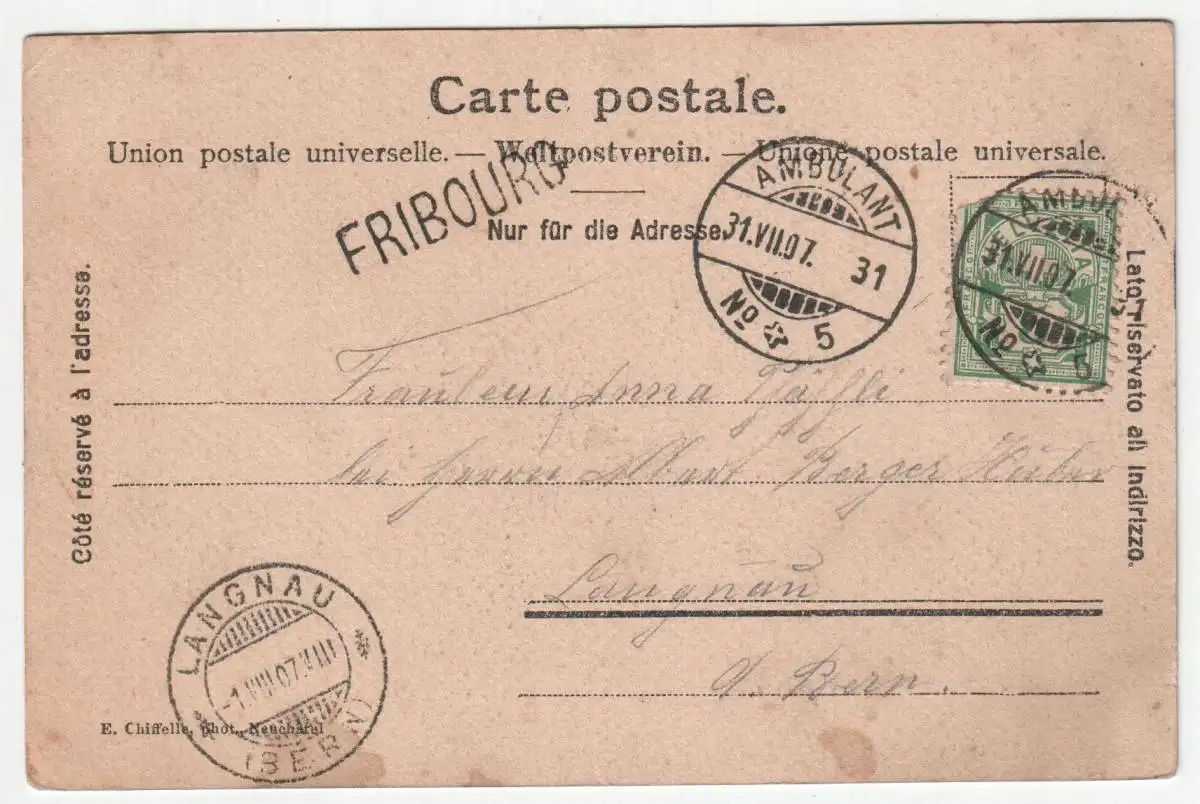 Carte postale.
Union postale universelle. — Weltpostverein. — Unione postale universale.
FRIBOURG
Nur für die Adresse.
AMBULANT
31.VII.07. 31
No 5
AMBUL
31.VII.07.
No 5
FRANCO
Côté réservé à l'adresse.
Lato riservato all indirizzo.
Fräulein Anna
bei Herrn Albert Berger Huber
Langnau
Bern.
LANGNAU
-1.VIII.07.VIII
(BERN)
E. Chiffelle, phot., Neuchâtel